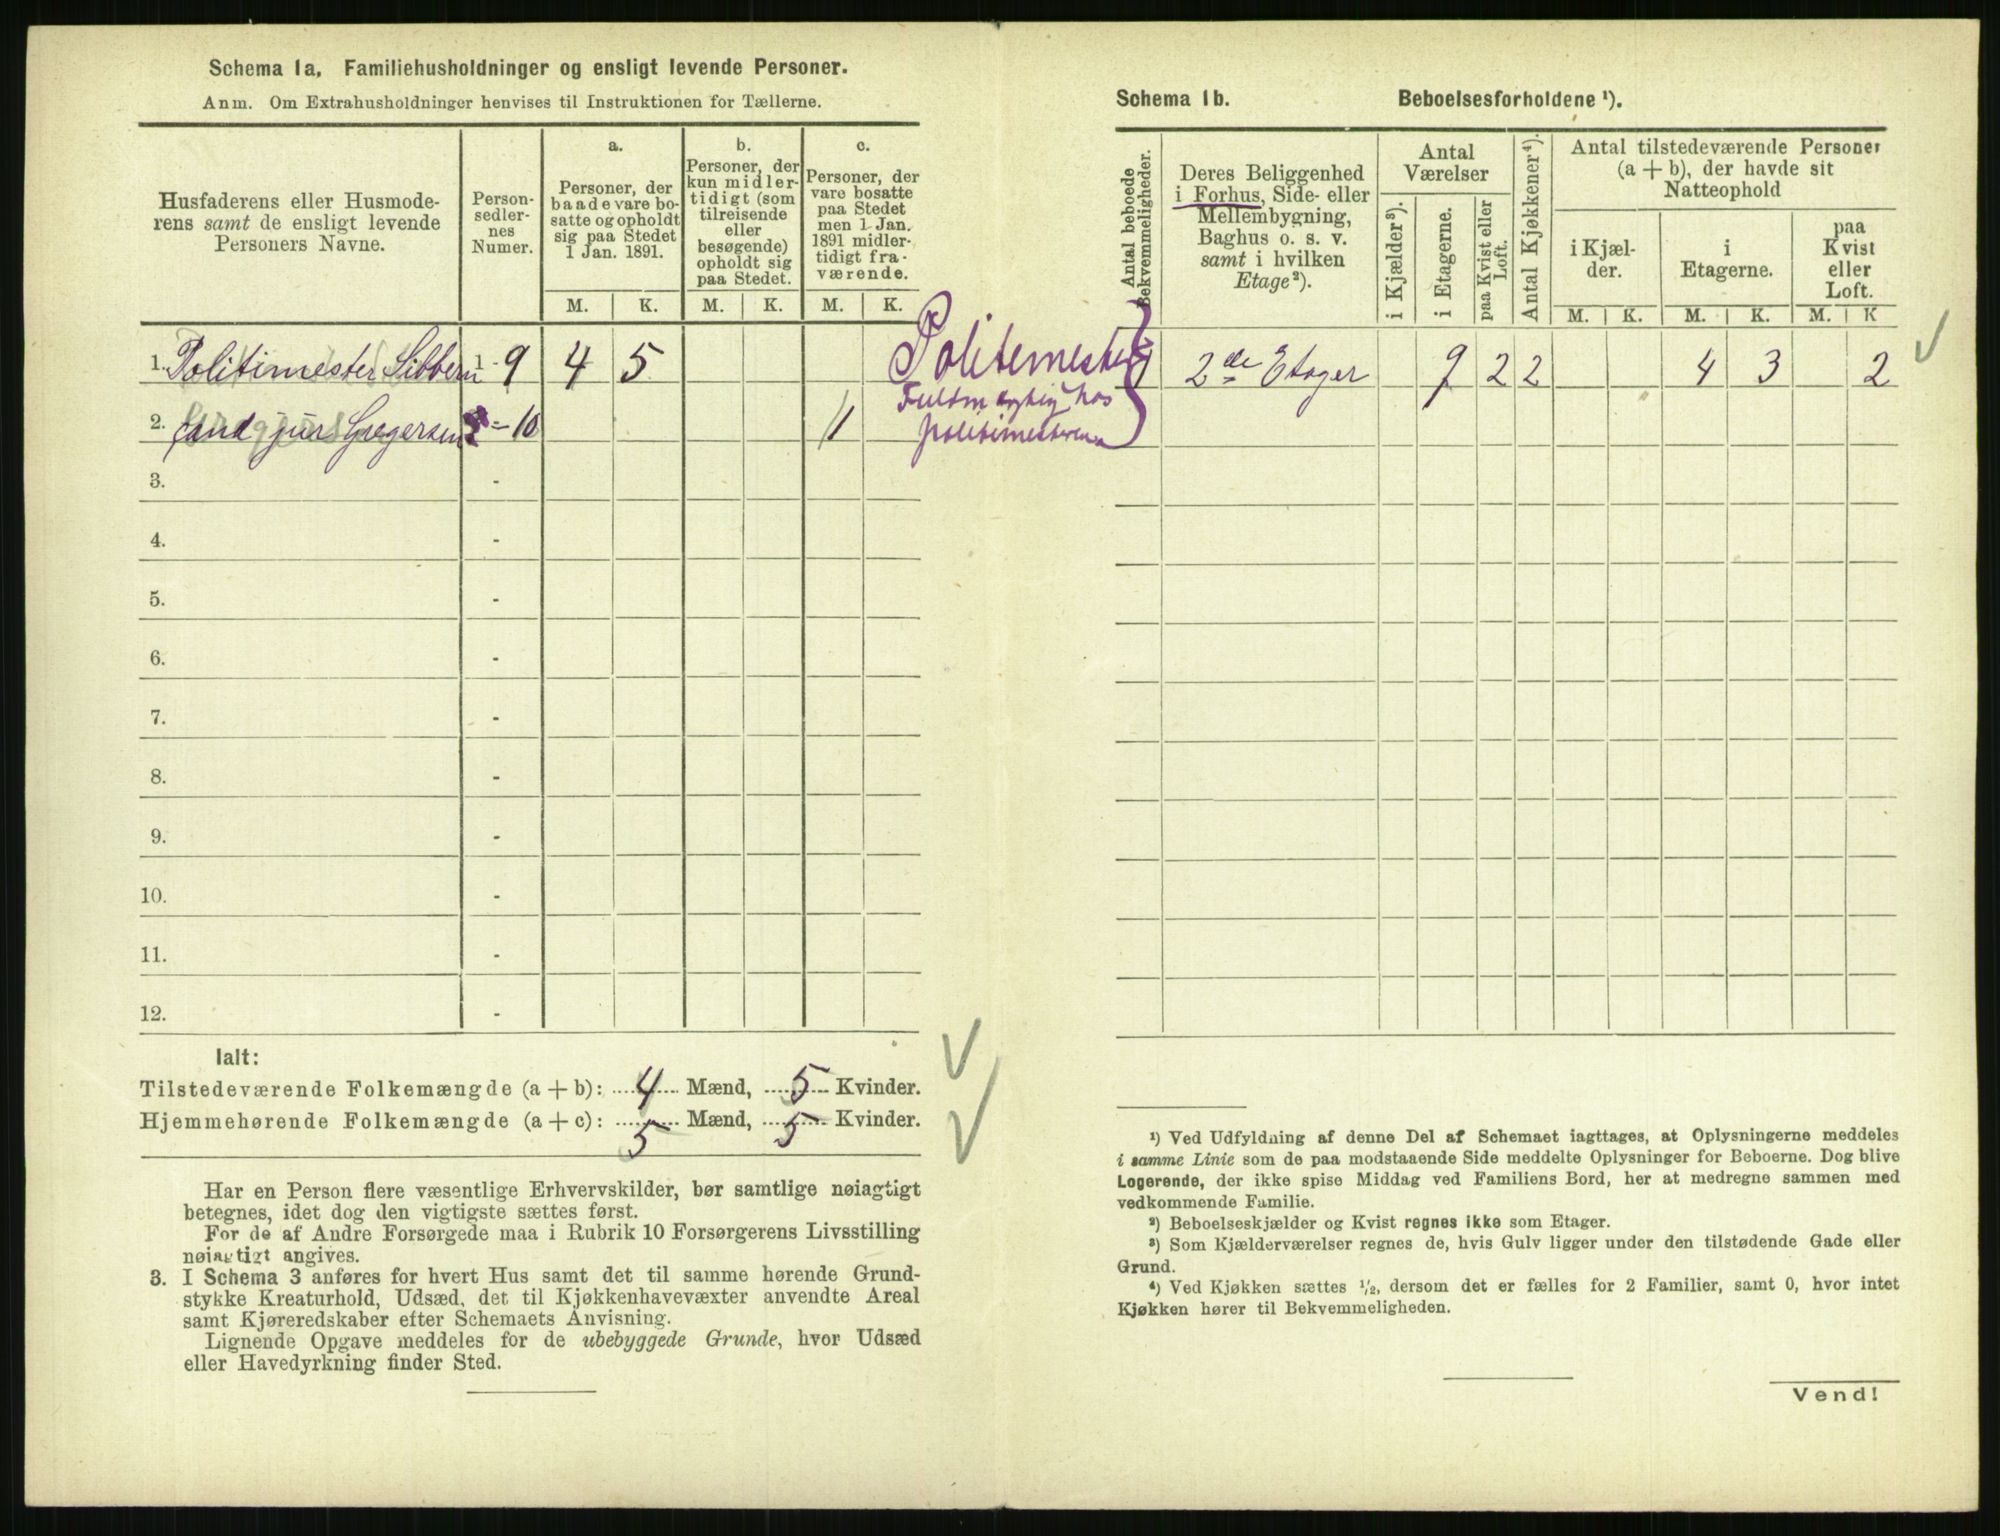 Schema 1a. Familiehusholdninger og ensligt levende Personer.
Anm. Om Extrahusholdninger henvises til Instruktionen for Tællerne.
Husfaderens eller Husmode-
rens samt de ensligt levende
Personers Navne.
Person-
sedler-
nes
Numer.
a.
Personer, der
baade vare bo-
satte og opholdt
sig paa Stedet
1 Jan. 1891.
b.
Personer, der
kun midler-
tidigt (som
tilreisende
eller
besøgende)
opholdt sig
paa Stedet.
c.
Personer, der
vare bosatte
paa Stedet
men 1 Jan.
1891 midler-
tidigt fra-
værende.
M. K. M. K. M. K.
1. Politimester Sibbern 1-9 4 5
2. Cand jur Gregersen = 10 1
3. -
4. -
5. -
6. -
7. -
8. -
9. -
10. -
11. -
12. -
Politimester
Fuldmægtig hos
politimesteren
Ialt:
Tilstedeværende Folkemængde (a + b): 4 Mænd, 5 Kvinder.
Hjemmehørende Folkemængde (a + c): 5 Mænd, 5 Kvinder.
Har en Person flere væsentlige Erhvervskilder, bør samtlige nøiagtigt
betegnes, idet dog den vigtigste sættes først.
For de af Andre Forsørgede maa i Rubrik 10 Forsørgerens Livsstilling
nøiagtigt angives.
3. I Schema 3 anføres for hvert Hus samt det til samme hørende Grund-
stykke Kreaturhold, Udsæd, det til Kjøkkenhavevæxter anvendte Areal
samt Kjøreredskaber efter Schemaets Anvisning.
Lignende Opgave meddeles for de ubebyggede Grunde, hvor Udsæd
eller Havedyrkning finder Sted.
Schema 1b. Beboelsesforholdene ¹).
Antal beboede
Bekvemmeligheder.
Deres Beliggenhed
i Forhus, Side- eller
Mellembygning,
Baghus o. s. v.
samt i hvilken
Etage²).
Antal
Værelser
i Kjælder³).
i Etagerne.
paa Kvist eller
Loft.
Antal Kjøkkener⁴).
Antal tilstedeværende Personer
(a + b), der havde sit
Natteophold
i Kjæl-
der.
i
Etagerne.
paa
Kvist
eller
Loft.
M. K. M. K. M. K
1 2de Etager 9 2 2 4 3 2
¹) Ved Udfyldning af denne Del af Schemaet iagttages, at Oplysningerne meddeles
i samme Linie som de paa modstaaende Side meddelte Oplysninger for Beboerne. Dog blive
Logerende, der ikke spise Middag ved Familiens Bord, her at medregne sammen med
vedkommende Familie.
²) Beboelseskjælder og Kvist regnes ikke som Etager.
³) Som Kjælderværelser regnes de, hvis Gulv ligger under den tilstødende Gade eller
Grund.
⁴) Ved Kjøkken sættes ½, dersom det er fælles for 2 Familier, samt 0, hvor intet
Kjøkken hører til Bekvemmeligheden.
Vend!